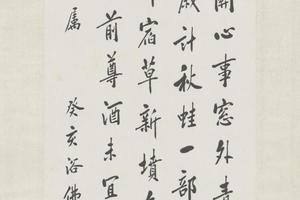 開心事窓外青
歲計秋蛙一部
宿草新墳
前尊酒未宜
属
癸亥浴佛